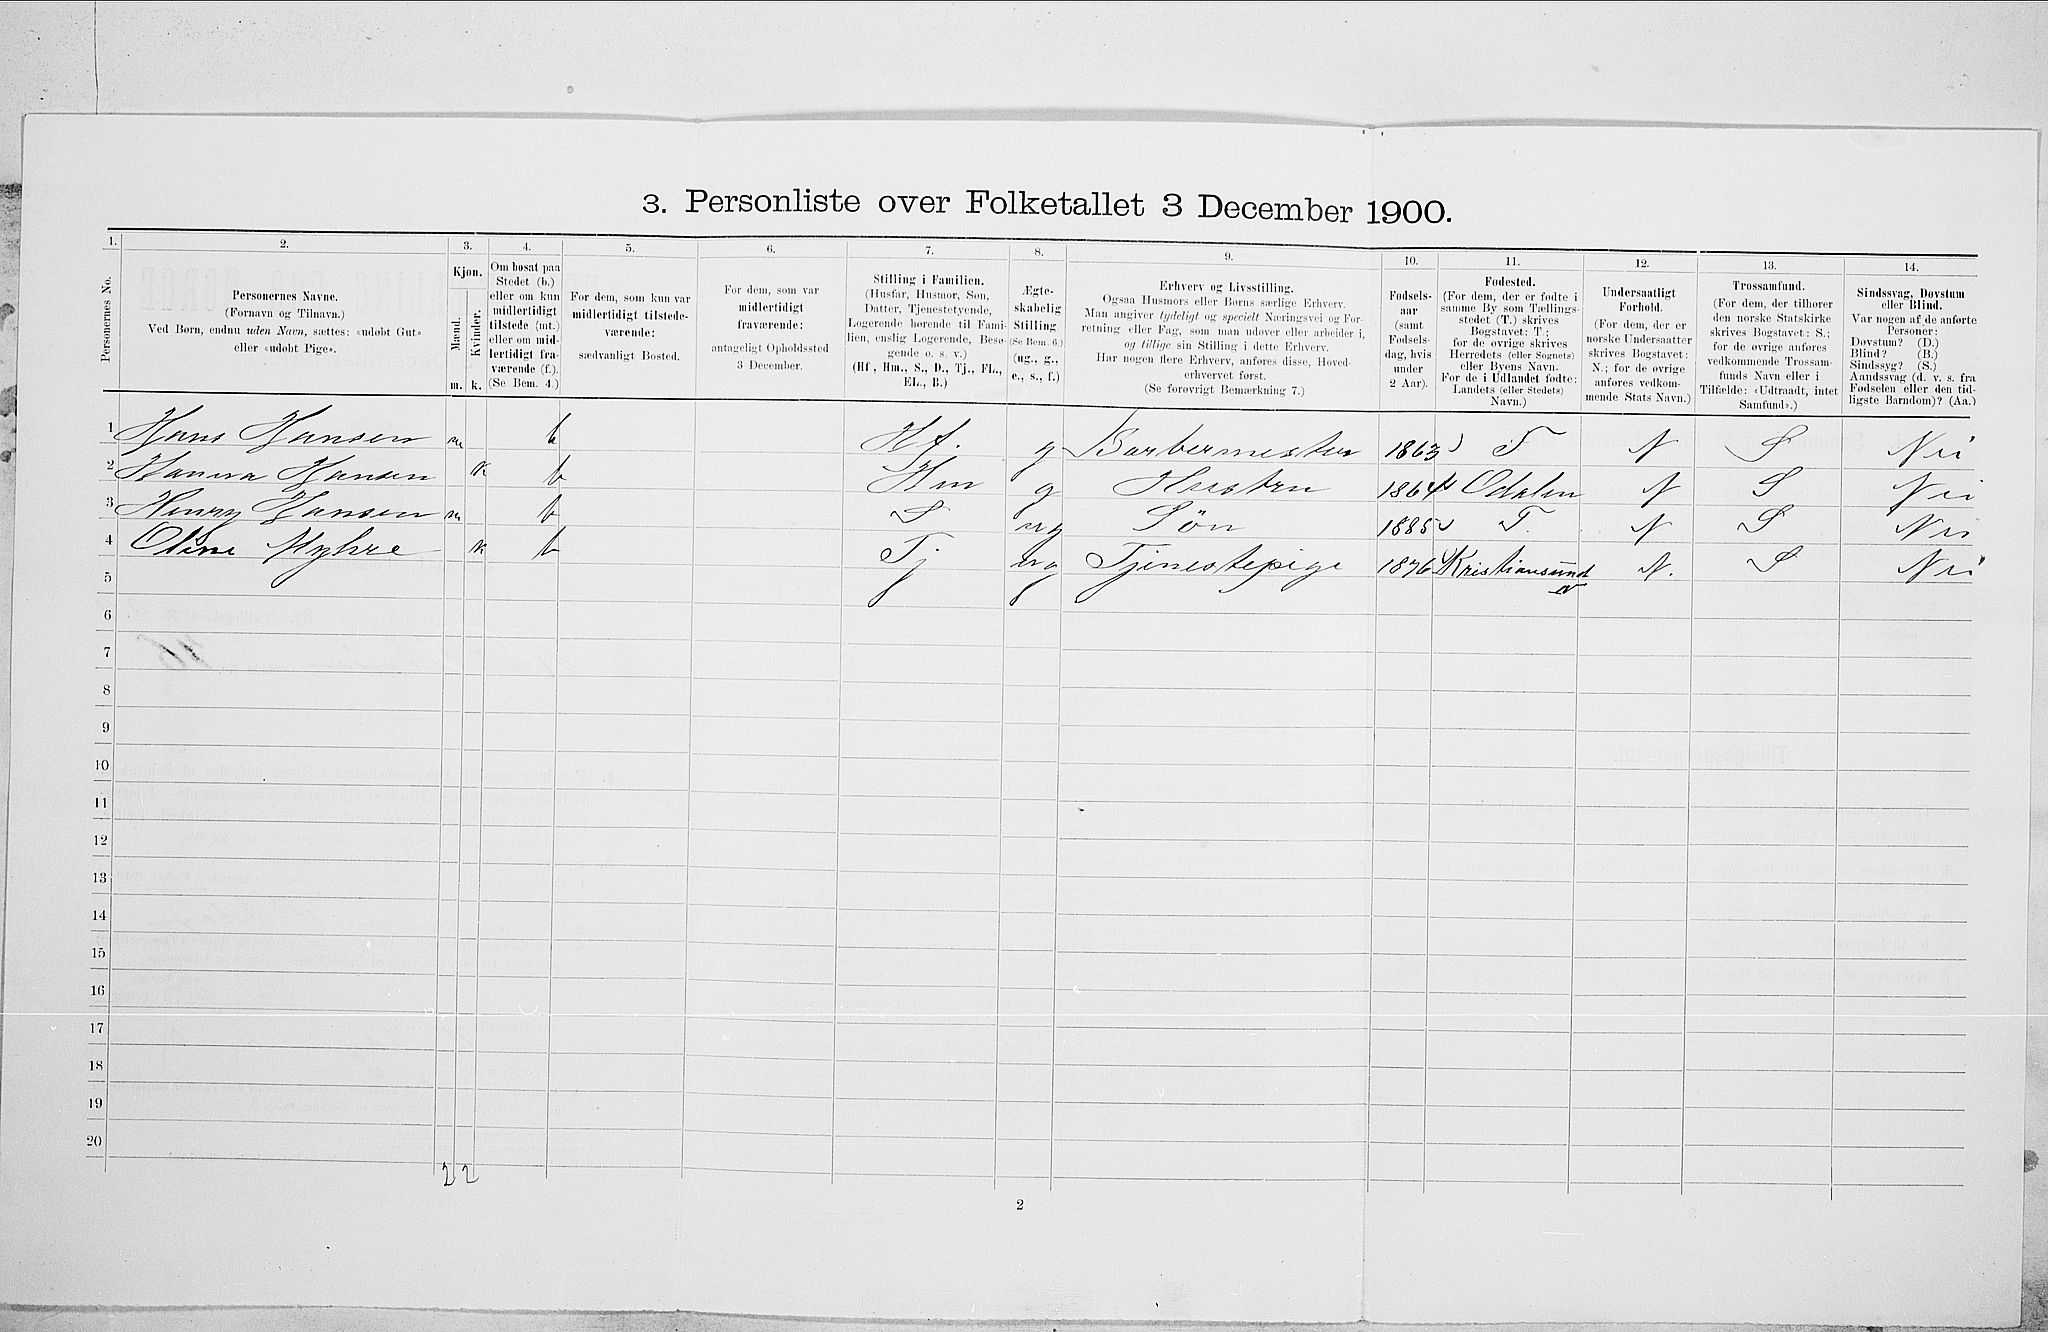 3. Personliste over Folketallet 3 December 1900.
1. 2. 3. 4. 5. 6. 7. 8. 9. 10. 11. 12. 13. 14.
Personernes No.
Personernes Navne.
(Fornavn og Tilnavn.)
Ved Børn, endnu uden Navn, sættes: «udøbt Gut»
eller «udøbt Pige».
Kjøn.
Mænd.
Kvinder.
m. k.
Om bosat paa
Stedet (b.)
eller om kun
midlertidigt
tilstede (mt.)
eller om mid-
lertidigt fra-
værende (f.).
(Se Bem. 4.)
For dem, som kun var
midlertidigt tilstede-
værende:
sædvanligt Bosted.
For dem, som var
midlertidigt
fraværende:
antageligt Opholdssted
3 December.
Stilling i Familien.
(Husfar, Husmor, Søn,
Datter, Tjenestetyende,
Logerende hørende til Fami-
lien, enslig Logerende, Besø-
gende o. s. v.)
(Hf., Hm., S., D., Tj., FL.,
EL., B.)
Ægte-
skabelig
Stilling
(Se Bem. 6.)
(ug., g.,
e., s., f.)
Erhverv og Livsstilling.
Ogsaa Husmors eller Børns særlige Erhverv.
Man angiver tydeligt og specielt Næringsvei og For-
retning eller Fag, som man udøver eller arbeider i,
og tillige sin Stilling i dette Erhverv.
Har nogen flere Erhverv, anføres disse, Hoved-
erhvervet først.
(Se forøvrigt Bemærkning 7.)
Fødsels-
aar
(samt
Fødsels-
dag, hvis
under
2 Aar).
Fødested.
(For dem, der er fødte i
samme By som Tællings-
stedet (T.) skrives
Bogstavet: T.;
for de øvrige skrives
Herredets (eller Sognets)
eller Byens Navn.
For de i Udlandet fødte:
Landets (eller Stedets)
Navn.)
Undersaatligt
Forhold.
(For dem, der er
norske Undersaatter
skrives Bogstavet:
N.; for de øvrige
anføres vedkom-
mende Stats Navn.)
Trossamfund.
(For dem, der tilhører
den norske Statskirke
skrives Bogstavet: S.;
for de øvrige anføres
vedkommende Trossam-
funds Navn eller i
Tilfælde: «Udtraadt, intet
Samfund».)
Sindssvag, Døvstum
eller Blind.
Var nogen af de anførte
Personer:
Døvstum? (D.)
Blind? (B.)
Sindssyg? (S.)
Aandssvag (d. v. s. fra
Fødselen eller den tid-
ligste Barndom)? (Aa.)
1 Hans Hansen m b Hf. g Barbermester 1863 T N S Nei
2 Hanna Hansen k b Hm g Hustru 1864 Odalen N S Nei
3 Henry Hansen m b S ug Søn 1885 T. N S Nei
4 Oline Myhre k b Tj ug Tjenestepige 1876 Kristiansund N N. S Nei
5
6
7
8
9
10
11
12
13
14
15
16
17
18
19
20
2 2
2